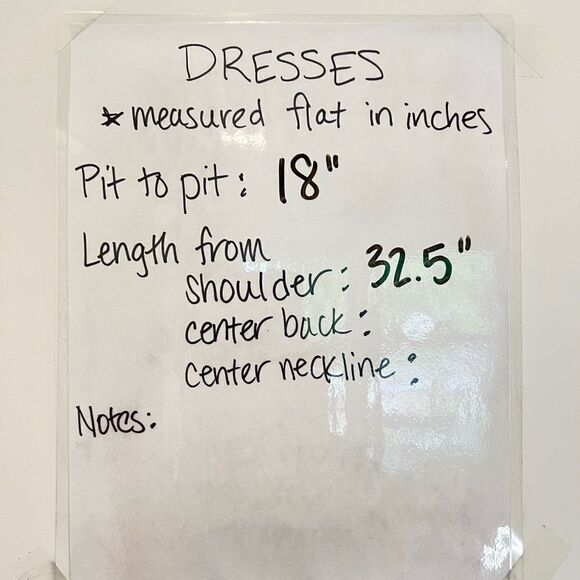 DRESSES
* measured flat in inches
Pit to pit: 18"
Length from
shoulder: 32.5"
center back:
center neckline:
Notes: